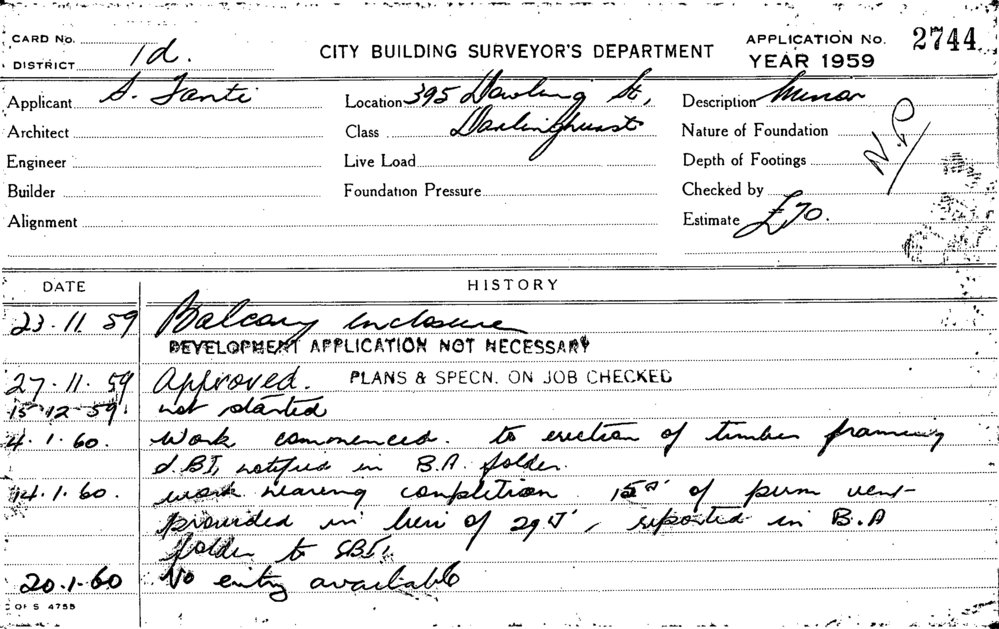 CARD No.
DISTRICT 1d.
CITY BUILDING SURVEYOR'S DEPARTMENT
APPLICATION No. 2744
YEAR 1959
Applicant S. Fanti Location 395 Dowling St, Description Minor
Architect Class Darlinghurst Nature of Foundation N.P
Engineer Live Load Depth of Footings
Builder Foundation Pressure Checked by
Alignment Estimate £70.
DATE HISTORY
23.11.59 Balcony enclosure
DEVELOPMENT APPLICATION NOT NECESSARY
27.11.59 Approved. PLANS & SPECN. ON JOB CHECKED
15.12.59. not started
4.1.60. Work commenced. to erection of timber framing
notified in B.A. folder.
14.1.60. work nearing completion 15 of perm vent
provided in lieu of 29, reported in B.A
folder to SBI.
20.1.60 No entry available
C OF S 4755